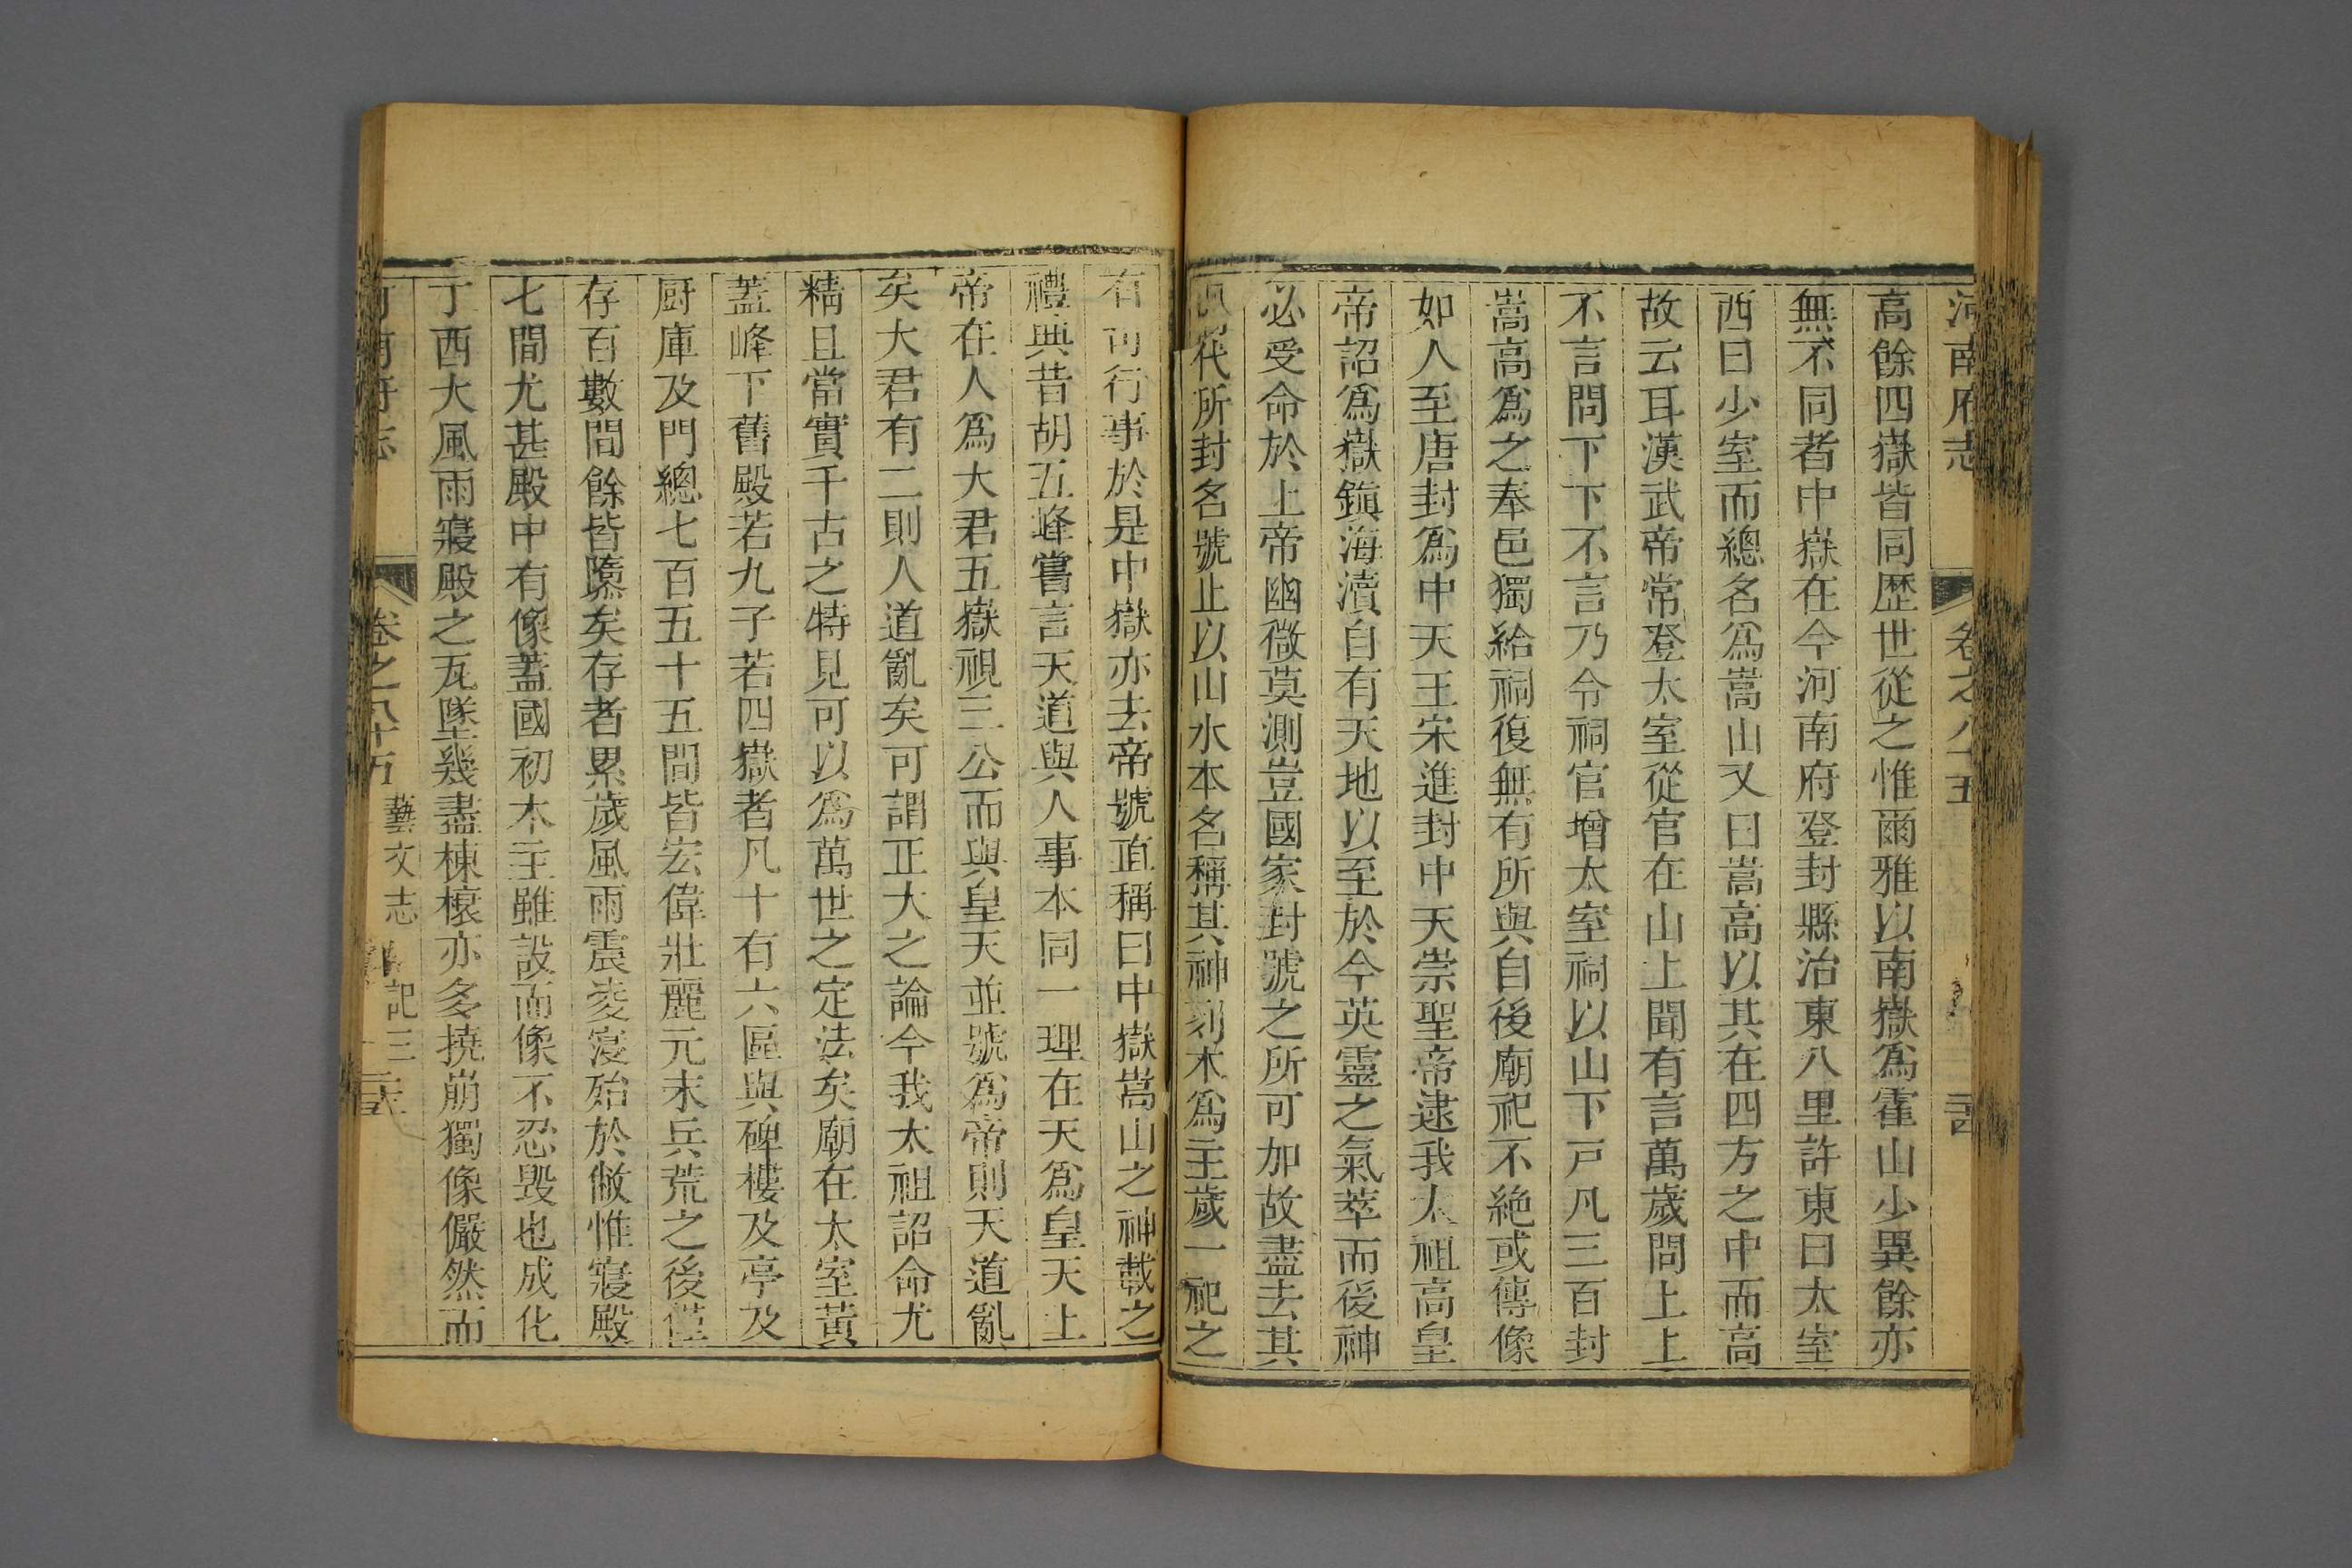 河南府志 卷之八十五
高餘四嶽皆同歷世從之惟爾雅以南嶽爲霍山少異餘亦
無不同者中嶽在今河南府登封縣治東八里許東曰太室
西曰少室而總名爲嵩山又曰嵩高以其在四方之中而高
故云耳漢武帝常登太室從官在山上聞有言萬歲問上上
不言問下下不言乃令祠官增太室祠以山下戸凡三百封
嵩高爲之奉邑獨給祠復無有所與自後廟祀不絶或傳像
如人至唐封爲中天王宋進封中天崇聖帝逮我太祖高皇
帝詔爲嶽鎮海瀆自有天地以至於今英靈之氣萃而後神
必受命於上帝幽微莫測豈國家封號之所可加故盡去其
代所封名號止以山水本名稱其神刻木爲主歲一祀之
有司行事於是中嶽亦去帝號直稱曰中嶽嵩山之神載之
禮典昔胡五峰嘗言天道與人事本同一理在天爲皇天上
帝在人爲大君五嶽視三公而與皇天並號爲帝則天道亂
矣大君有二則人道亂矣可謂正大之論今我太祖詔命尤
精且當實千古之特見可以爲萬世之定法矣廟在太室黃
蓋峰下舊殿若九子若四嶽者凡十有六區與碑樓及亭及
厨庫及門總七百五十五間皆宏偉壯麗元末兵荒之後僅
存百數間餘皆隳矣存者累歲風雨震凌寖殆於敝惟寢殿
七間尤甚殿中有像蓋國初木主雖設而像不忍毀也成化
丁酉大風雨寢殿之瓦墜幾盡棟榱亦多撓崩獨像儼然而
河南府志 卷之八十五 藝文志 記三